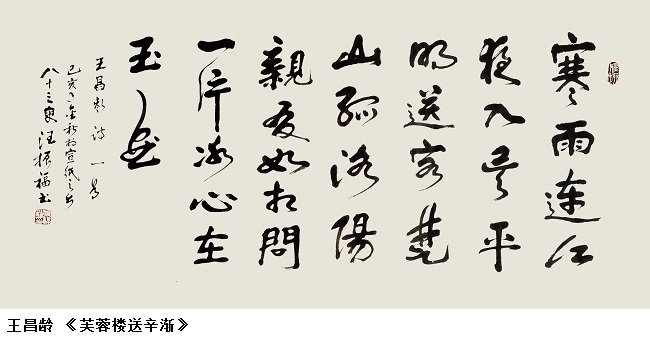 寒雨連江
夜入吴平
明送客楚
山孤洛陽
親友如相問
一片冰心在
玉壶
王昌龄诗一首
己亥之金秋於宣纸之乡
八十三叟汪振福书
王昌龄 《芙蓉楼送辛渐》